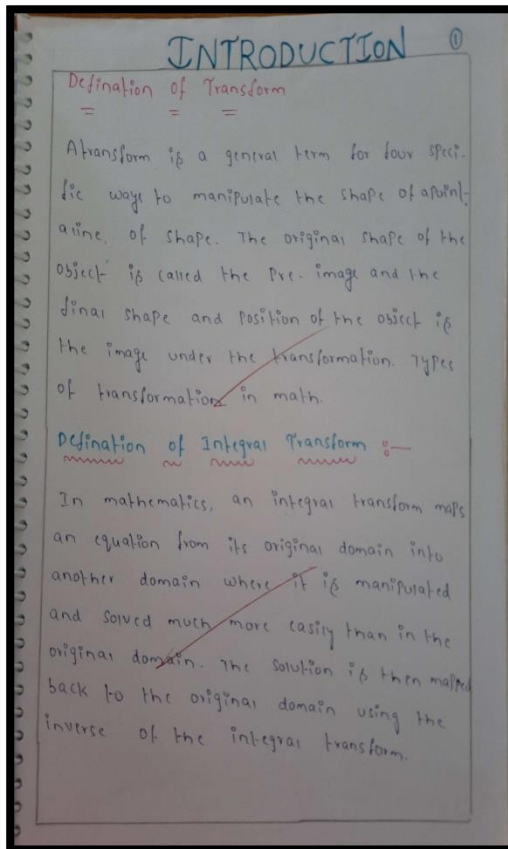 INTRODUCTION ①
Defination of Transform
A transform is a general term for four speci-
fic ways to manipulate the shape of a point-
a line, of shape. The original shape of the
object is called the Pre-image and the
final shape and position of the object is
the image under the transformation. Types
of transformation in math.
Defination of Integral Transform :-
In mathematics, an integral transform maps
an equation from its original domain into
another domain where it is manipulated
and solved much more easily than in the
original domain. The solution is then mapped
back to the original domain using the
inverse of the integral transform.